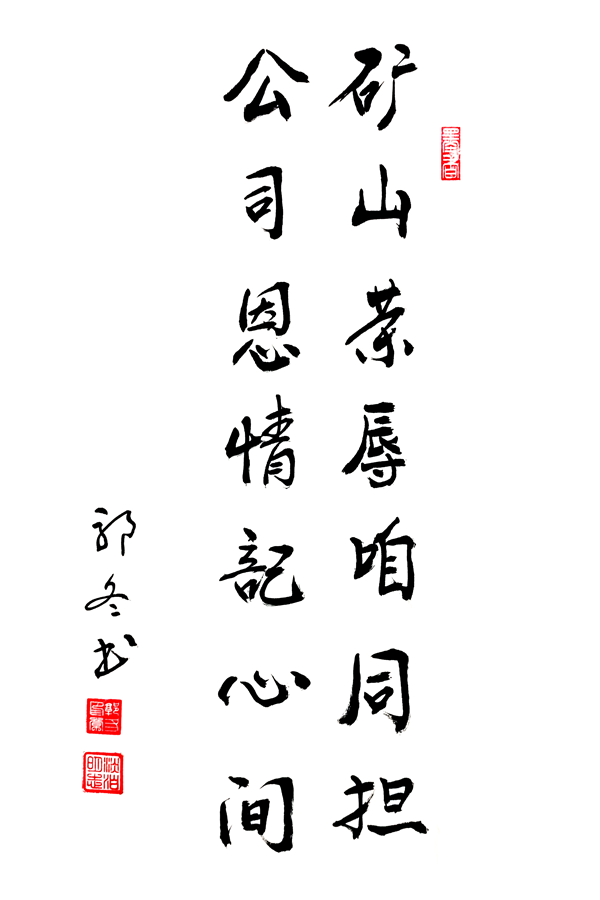 矿山荣辱咱同担
公司恩情記心间
郭冬书